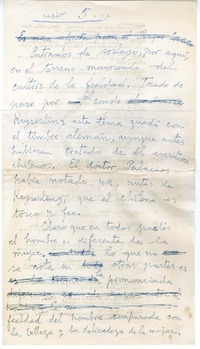 5
Entramos de soslayo, por aquí,
en el terreno monográfico del
cultivo de la fealdad. Traído de
paso por el conde
Keyserling este tema quedó con
el timbre alemán, aunque antes
hubieran tratado de él escritores
chilenos. El doctor Palacios
había notado ya, antes de
Keyserling, que el chileno es
tosco y feo.
Claro que en todas partes
el hombre es diferente de la
mujer. Lo que no
se cota en otras partes es
es la pronunciada
fealdad del hombre comparada con
la belleza y la delicadeza de la mujer.